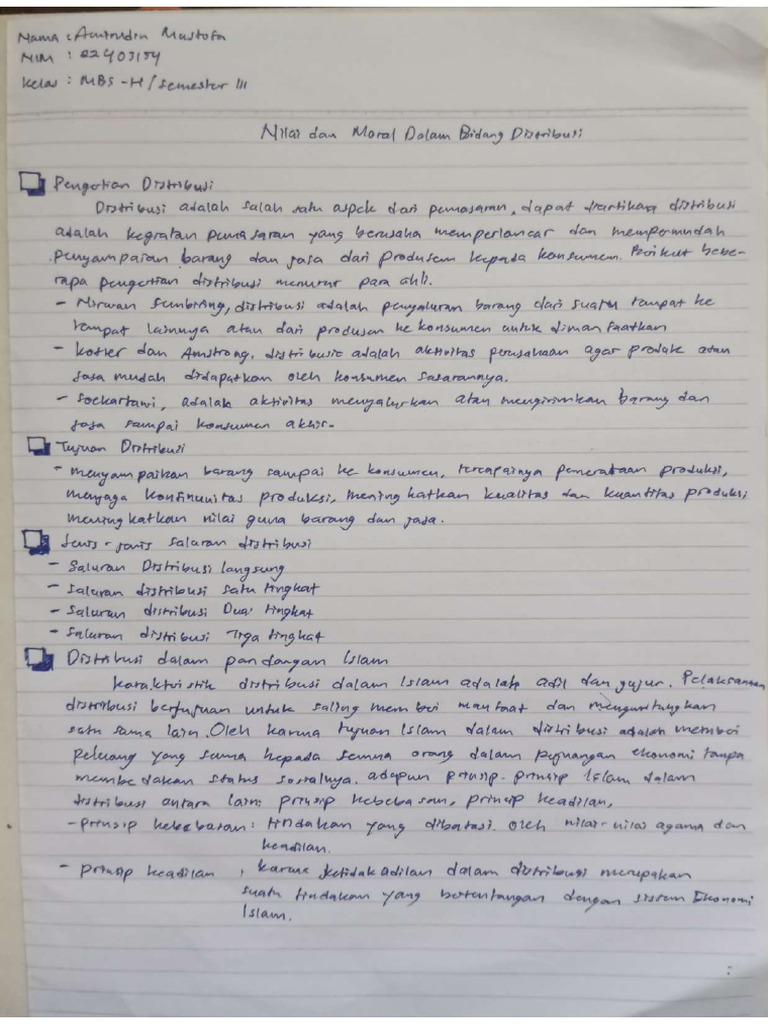 Nama : Amirudin Mustofa
NIM : 22403154
Kelas : MBS - H / Semester III
Nilai dan Moral Dalam Bidang Distribusi
Pengertian Distribusi
Distribusi adalah salah satu aspek dari pemasaran, dapat diartikan distribusi
adalah kegiatan pemasaran yang berusaha memperlancar dan mempermudah
penyampaian barang dan jasa dari produsen kepada konsumen. Berikut bebe-
rapa pengertian distribusi menurut para ahli.
- Nirwan Sembiring, distribusi adalah penyaluran barang dari suatu tempat ke
tempat lainnya atau dari produsen ke konsumen untuk dimanfaatkan
- Kotler dan Amstrong, distribusi adalah aktivitas perusahaan agar produk atau
jasa mudah didapatkan oleh konsumen sasarannya.
- Soekartawi, adalah aktivitas menyalurkan atau mengirimkan barang dan
jasa sampai konsumen akhir.
Tujuan Distribusi
- menyampaikan barang sampai ke konsumen, tercapainya pemerataan produksi,
menjaga kontinunitas produksi, meningkatkan kualitas dan kuantitas produksi
meningkatkan nilai guna barang dan jasa.
Jenis - jenis saluran distribusi
- Saluran Distribusi langsung
- Saluran distribusi satu tingkat
- Saluran distribusi Dua tingkat
- Saluran distribusi Tiga tingkat
Distribusi dalam pandangan Islam
karakteristik distribusi dalam Islam adalah adil dan jujur. Pelaksanaan
distribusi bertujuan untuk saling memberi manfaat dan menguntungkan
satu sama lain. Oleh karna tujuan Islam dalam distribusi adalah memberi
peluang yang sama kepada semua orang dalam pejuangan ekonomi tanpa
membedakan status sosialnya. adapun prinsip-prinsip Islam dalam
distribusi antara lain: prinsip kebebasan, prinsip keadilan,
- prinsip kebebasan : tindakan yang dibatasi oleh nilai-nilai agama dan
keadilan.
- prinsip keadilan , karena ketidakadilan dalam distribusi merupakan
suatu tindakan yang bertentangan dengan sistem Ekonomi
Islam.